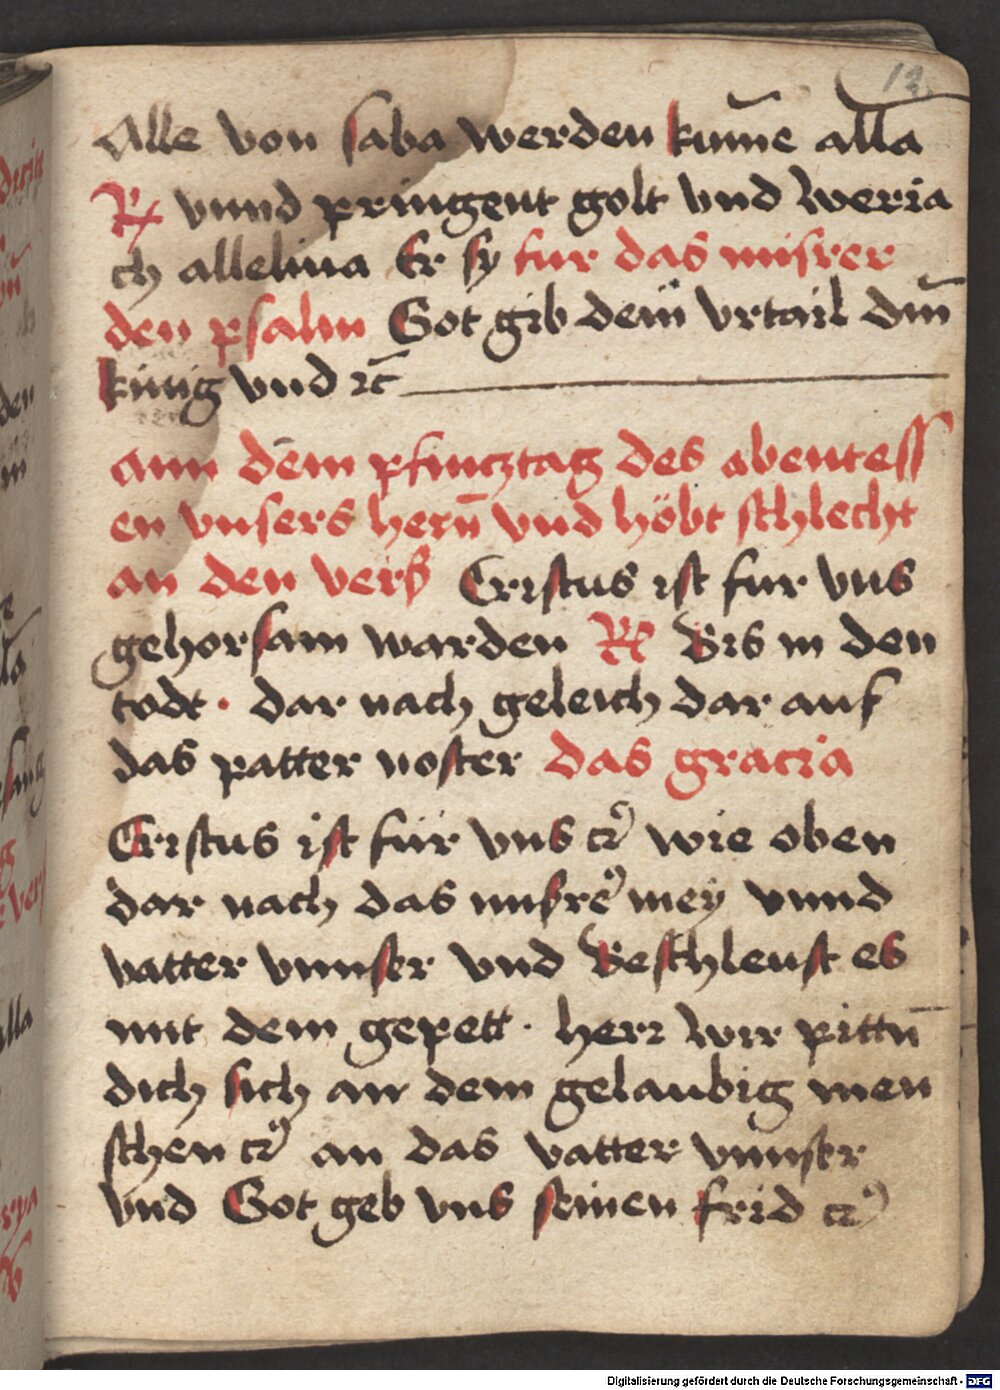 12
Alle von saba werden kum̄e alla
R vnnd pringent golt vnd weria
ch alleluia Er sy fur das misrer
den psalm Got gib dein vrtail dm̄
kinig vnd ꝛc̄
ann dem pfincztag des abentess
en vnsers hern̄ vnd höbt schlecht
an den vers Cristus ist fur vns
gehorsam warden R Bis in den
todt · dar nach geleich dar auf
das patter noster das gracia
Cristus ist für vns ꝛc wie oben
dar nach das misre mey vnnd
vatter vnnser vnd Beschleust es
mit dem gepett · herr wir pittn̄
dich sich an dem gelaubig men
schen ꝛc an das vatter vnnser
vnd Got geb vns seinen frid ꝛc
Digitalisierung gefördert durch die Deutsche Forschungsgemeinschaft - DFG